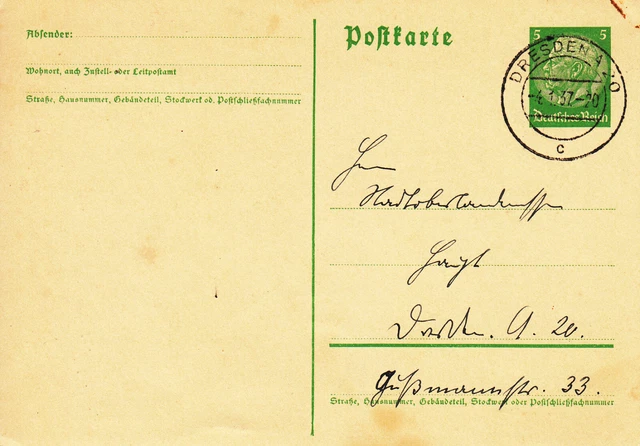 Absender:
Wohnort, auch Zustell- oder Leitpostamt
Straße, Hausnummer, Gebäudeteil, Stockwerk od. Postschließfachnummer
Postkarte
5 5
DRESDEN A
37-20
c
Deutsches Reich
Herrn
Dresden. A. 20.
Gußmannstr. 33.
Straße, Hausnummer, Gebäudeteil, Stockwerk oder Postschließfachnummer